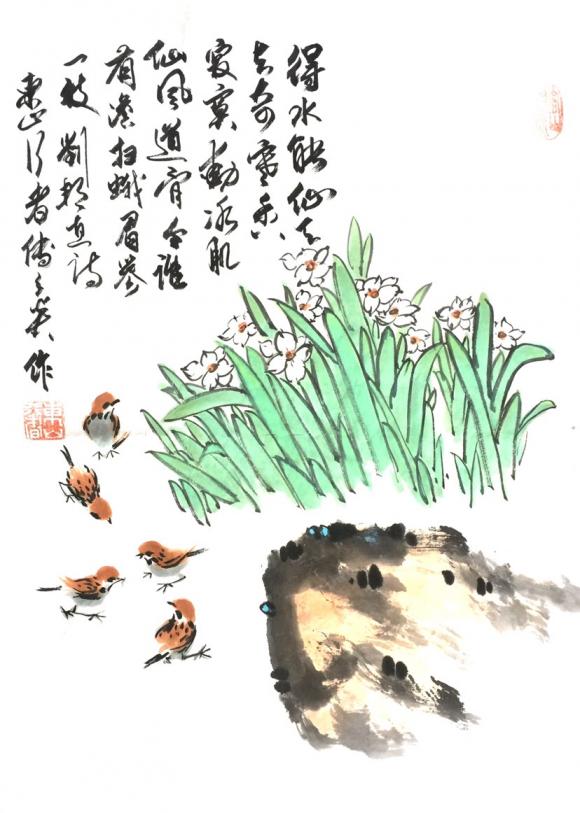 得水能仙天
与奇寒香
寂寞動冰肌
仙風道骨今谁
有淡扫蛾眉篸
一枝 劉邦直诗
东山行者傅作